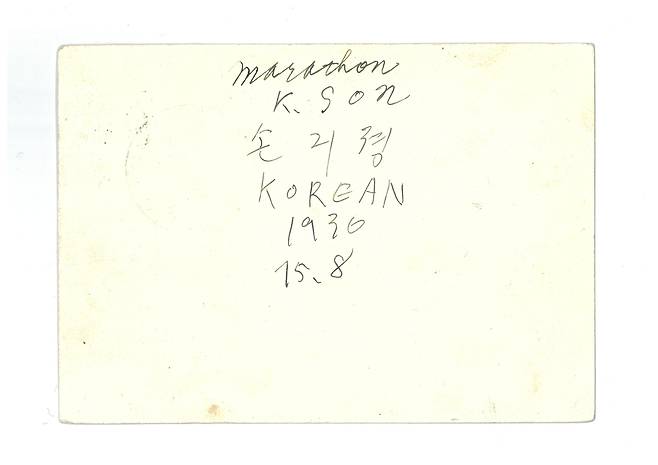 marathon
K. SON
손 긔 졍
KOREAN
1936
15. 8